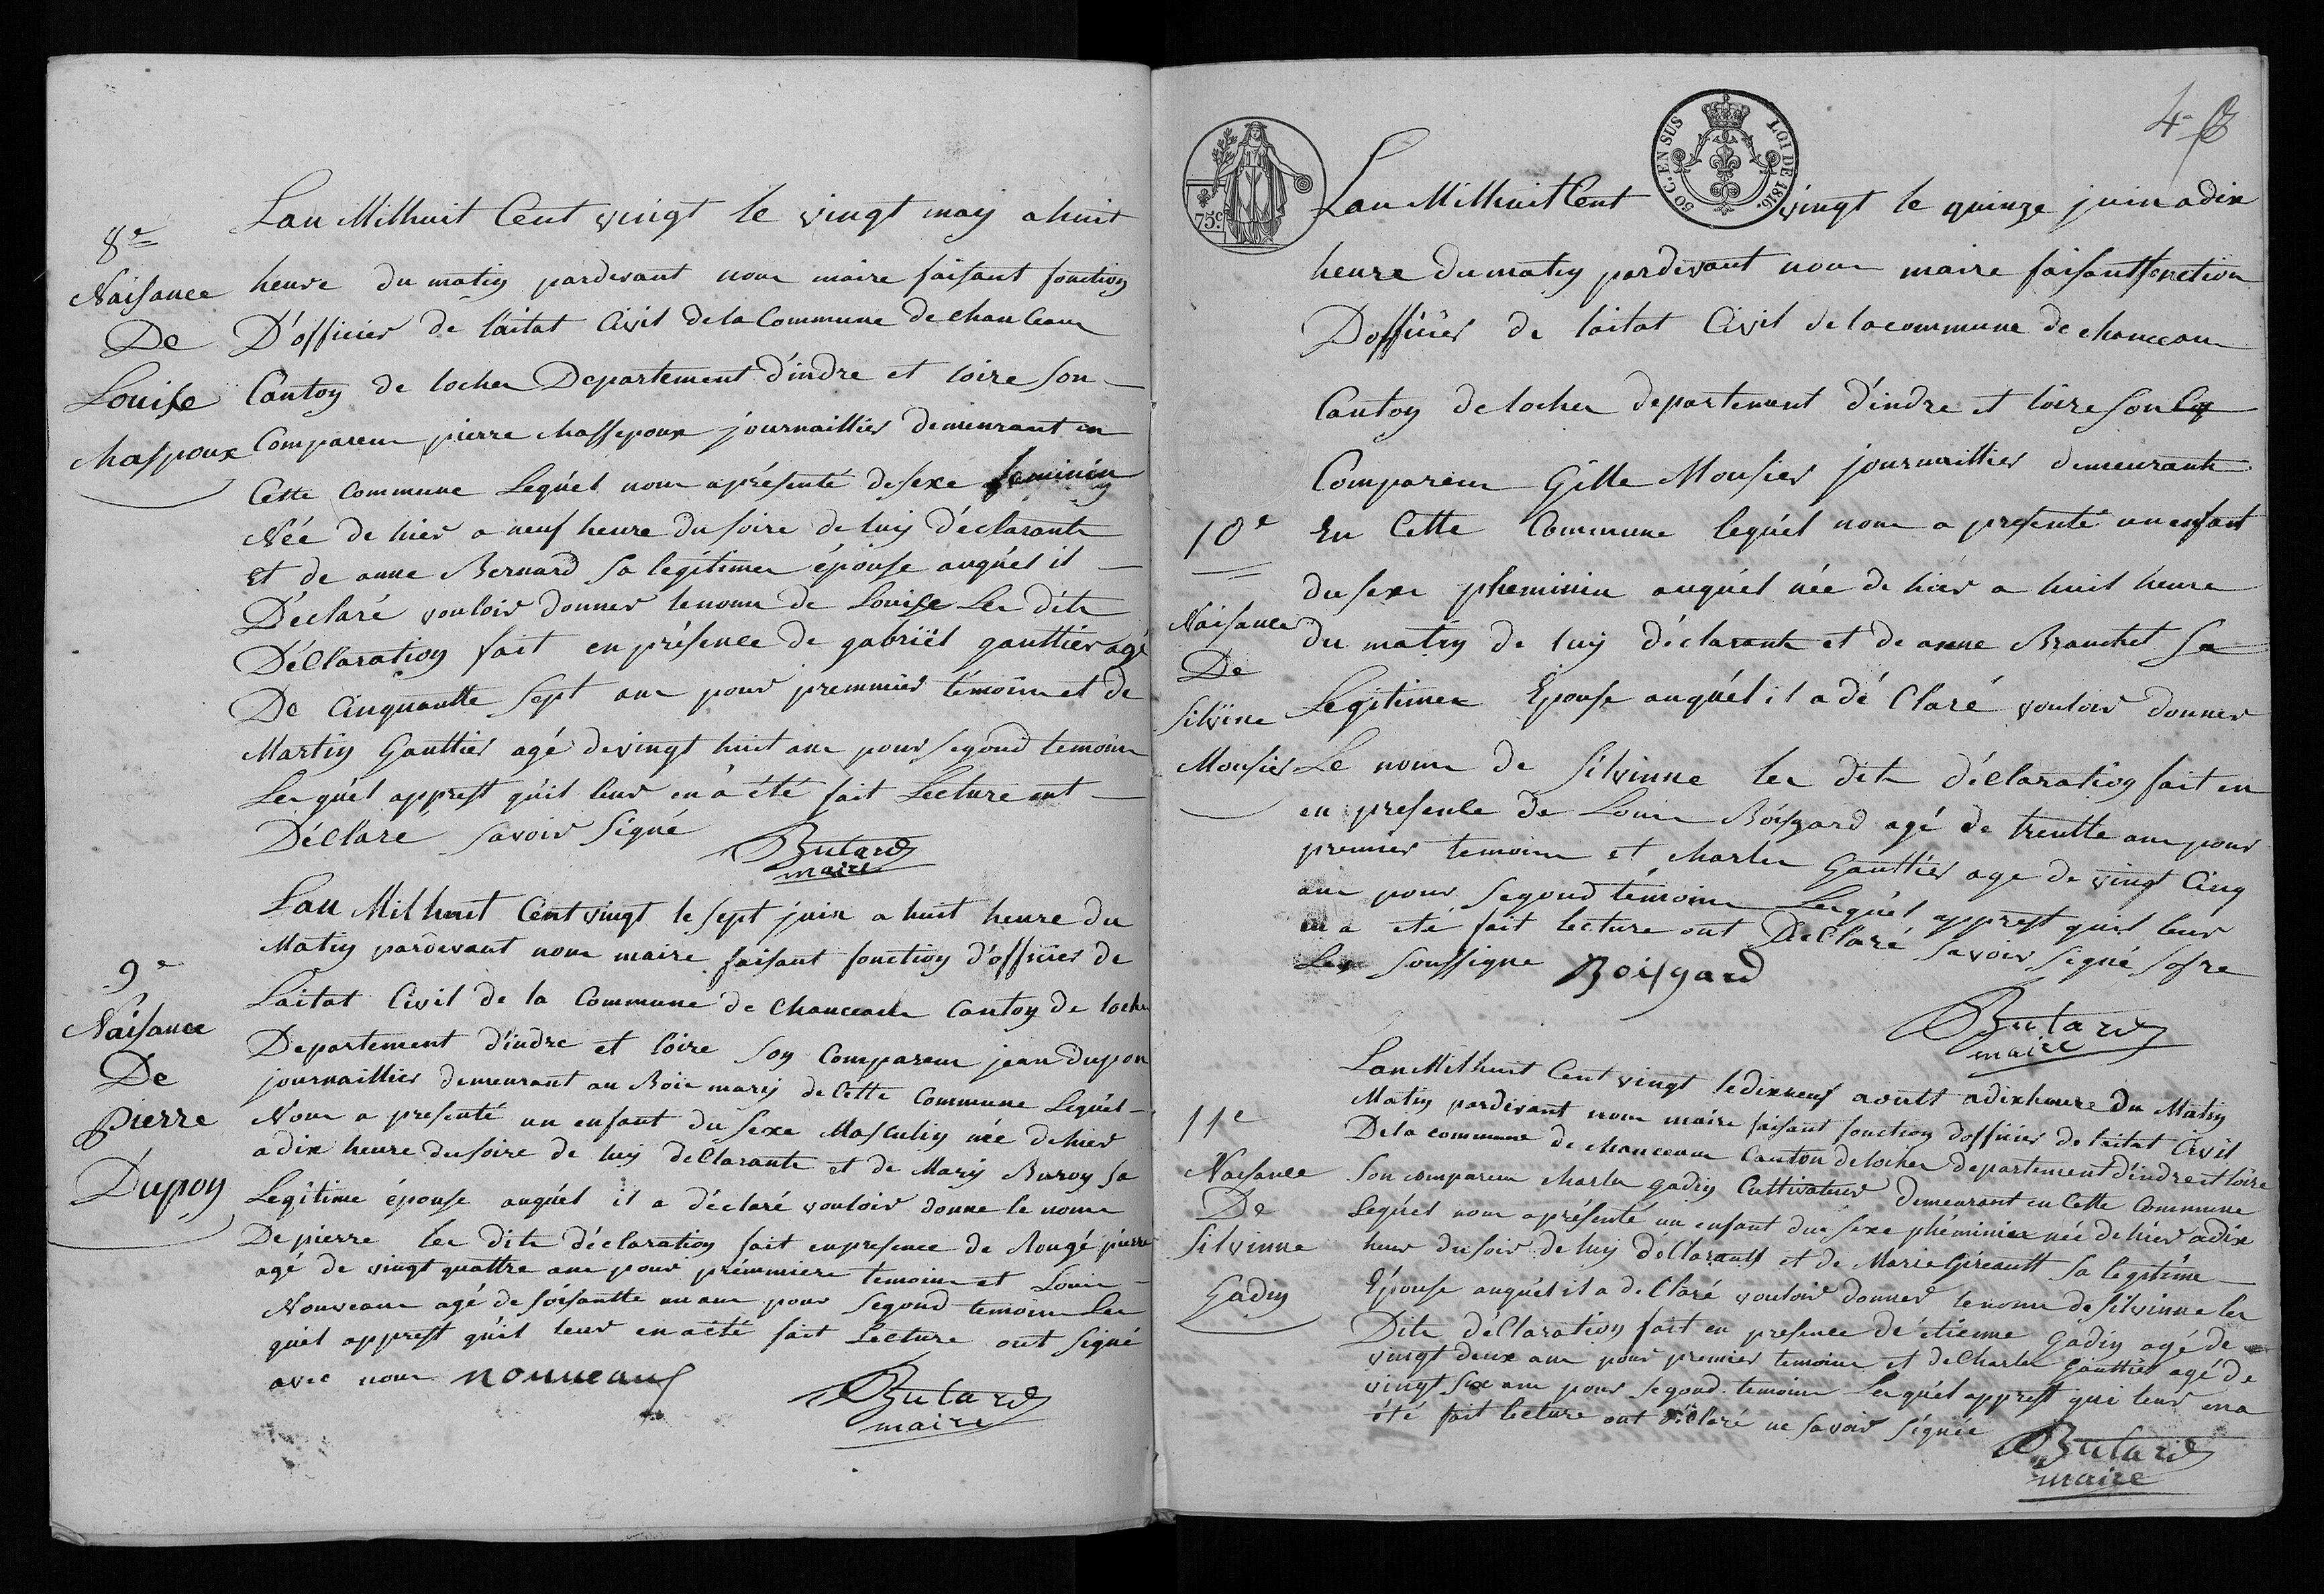 8e
Naisance
De
Louise
chaspoux
Lau Milhuit Cent vingt le vingt may a huit
heure du matin pardevant nous maire faisant fonction
D'officier de l'aitat Civil de la Commune de chanceaux
Canton de loches Departement d'indre et loire son
Comparem pierre chassepoux journaillier demeurant en
Cette Commune Lequél nous aprésenté desexe feminin
Née de hier a neuf heure du soire de luy déclarante
et de anne Bernard sa légitimes épouse auquél il
Déclaré vouloir donner lenome de Louise Les dite
Déclaration fait enprésence de gabriël gauttiér agé
De Cinquantte sept ans pour premmier témoins et de
Martin Gauttier agé devingt huit ans pour segond temoins
Les quél apprest quil leur en à été fait Lecture ont
Déclaré savoir signé
Butard
maire
9e
Naisance
De
pierre
Dupon
Lau Mil huit Cent vingt le sept juin a huit heure du
Matin pardevant nous maire faisant fonction d'officier de
Laitat Civil de la Commune de Chanceaux Canton de loches
Departement d'indre et loire son Comparem jean dupon
journaillier demeurant au Bois mary de Cette Commune Lequél
Nous a presenté un enfant du sexe Masculin née dehier
a dix heure dusoire de luy deClarante et de Mary Buron sa
Legitime épouse auquél il a déclaré vouloir donne le nome
De pierre les dite déclaration fait enpresence de Rougé pierre
agé de vingt quattre ans pour prémmiere temoins et Louis
Nouveaux agé de soisantte un ans pour segond temoins Les
quél apprest quil leur enaété fait Lecture ont signé
avec nous nouueaux
Butard
maire
4e
75c.
50 C. EN SUS LOI DE 1816.
10e
Naisance
De
Silvine
Mousier
Lau Milhuit Cent vingt le quinze juin adix
heure dumatin pardevant nous maire faisantfonction
Dofficier de laitat Civil delacommune de chanceaux
Canton de loches departement d'indre et loire son
Comparem Gille Mousier journaillier demeurante
En Cette Commune lequél nous a presenté un enfant
du sexe pheminin auquél née de hier a huit heure
du matin de luy déclarante et de anne Branchet sa
Legitimes Epouse auquél il a dé Claré vouloir donner
Le nome de Silvinne les dite déclaration fait en
en presence de Louis Boisgard agé de trentte ans pour
premier temoins et charles Gauttiér age de vingt Cinq
ans pour segond témoins Lesquél apprest quil leur
en a été fait lecture ont DeClaré savoir signé sofre
Les soussigne Boisgard
Butard
maire
11e
Naisance
De
Silvinne
Gadin
Lau Milhuit Cent vingt ledixneuf aoutt adixheure du Matin
Matin pardevant nous maire faisant fonction dofficier de laitat Civil
De la commune de chanceaux Canton deloches departement d'indre et loire
Son comparem charles gadin Cultivateur demeurant en Cette Commune
Lequél nous aprésenté un enfant due sexe phéminin née dehier adix
heur dusoir de luy déClarantt et de Marie Gireautt sa legitime
Epouse auquél il a deClaré vouloir donner lenome de Silvinne les
Dite déClaration fait en presence de étienne Gadin agé de
vingt deux ans pour premier temoins et decharles Gauttiér agé de
vingt six ans pour segond temoins Lesquél apprest qui leur ena
été fait lecture ont déClaré ne savoir signée
Butard
maire